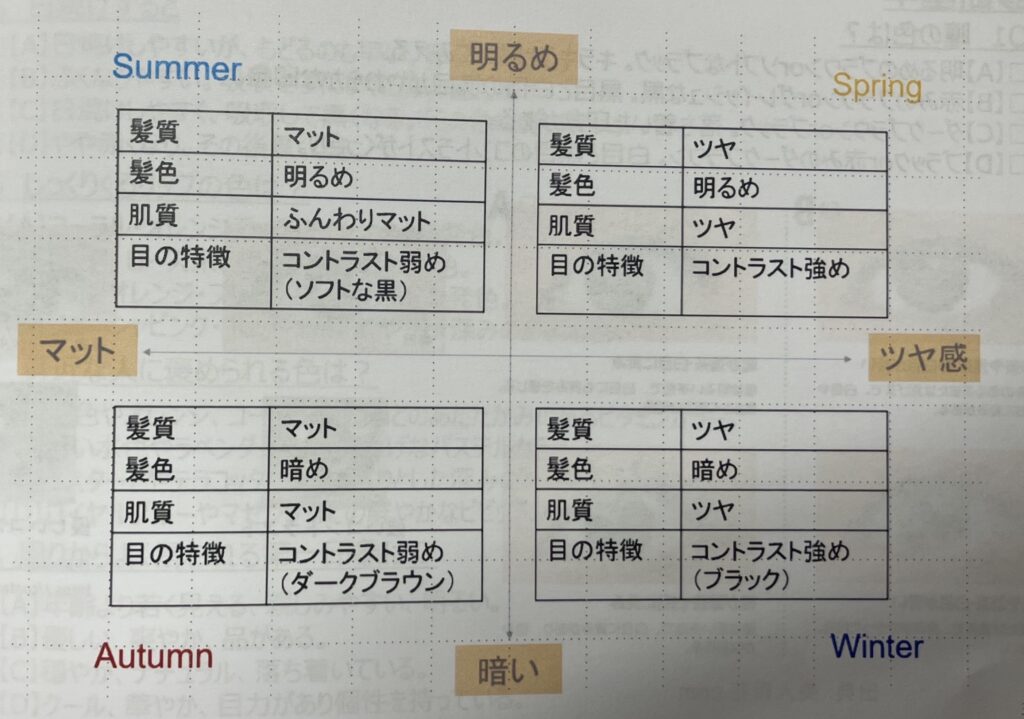 明るめ
Summer
髪質 マット
髪色 明るめ
肌質 ふんわりマット
目の特徴 コントラスト弱め
（ソフトな黒）
Spring
髪質 ツヤ
髪色 明るめ
肌質 ツヤ
目の特徴 コントラスト強め
マット
ツヤ感
髪質 マット
髪色 暗め
肌質 マット
目の特徴 コントラスト弱め
（ダークブラウン）
Autumn
髪質 ツヤ
髪色 暗め
肌質 ツヤ
目の特徴 コントラスト強め
（ブラック）
Winter
暗い